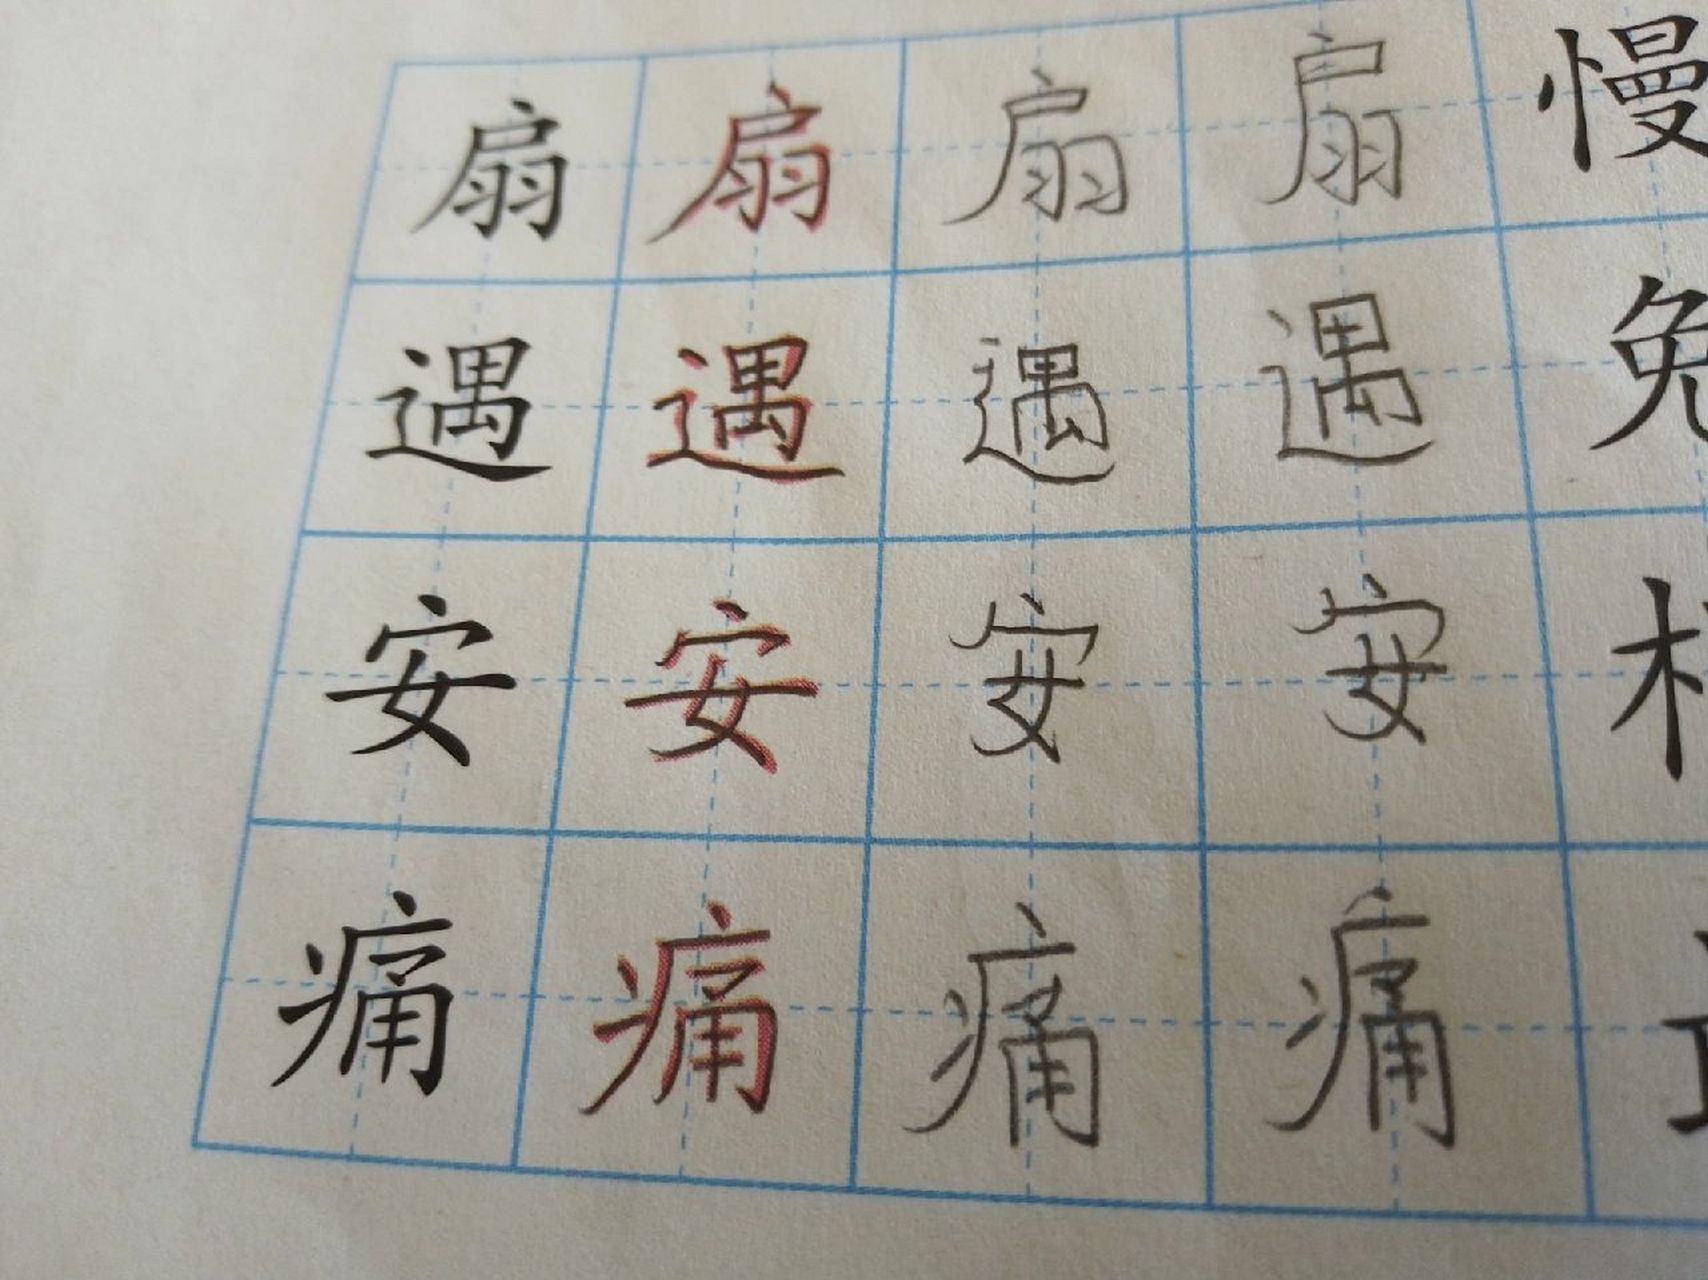 扇 扇 扇 扇 慢
遇 遇 遇 遇 免
安 安 安 安
痛 痛 痛 痛